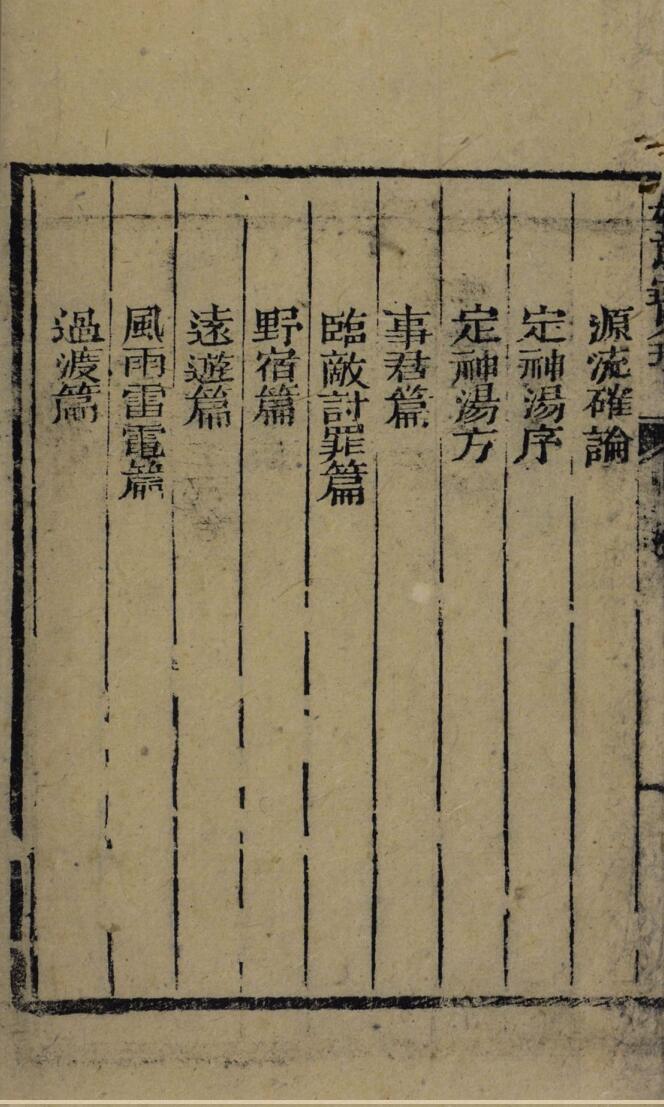 源流確論
定神湯序
定神湯方
事君篇
臨敵討罪篇
野宿篇
遠遊篇
風雨雷電篇
過渡篇